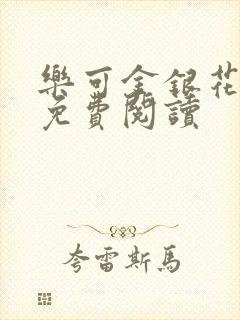 樂可金銀花
免費閱讀
夸雷斯馬